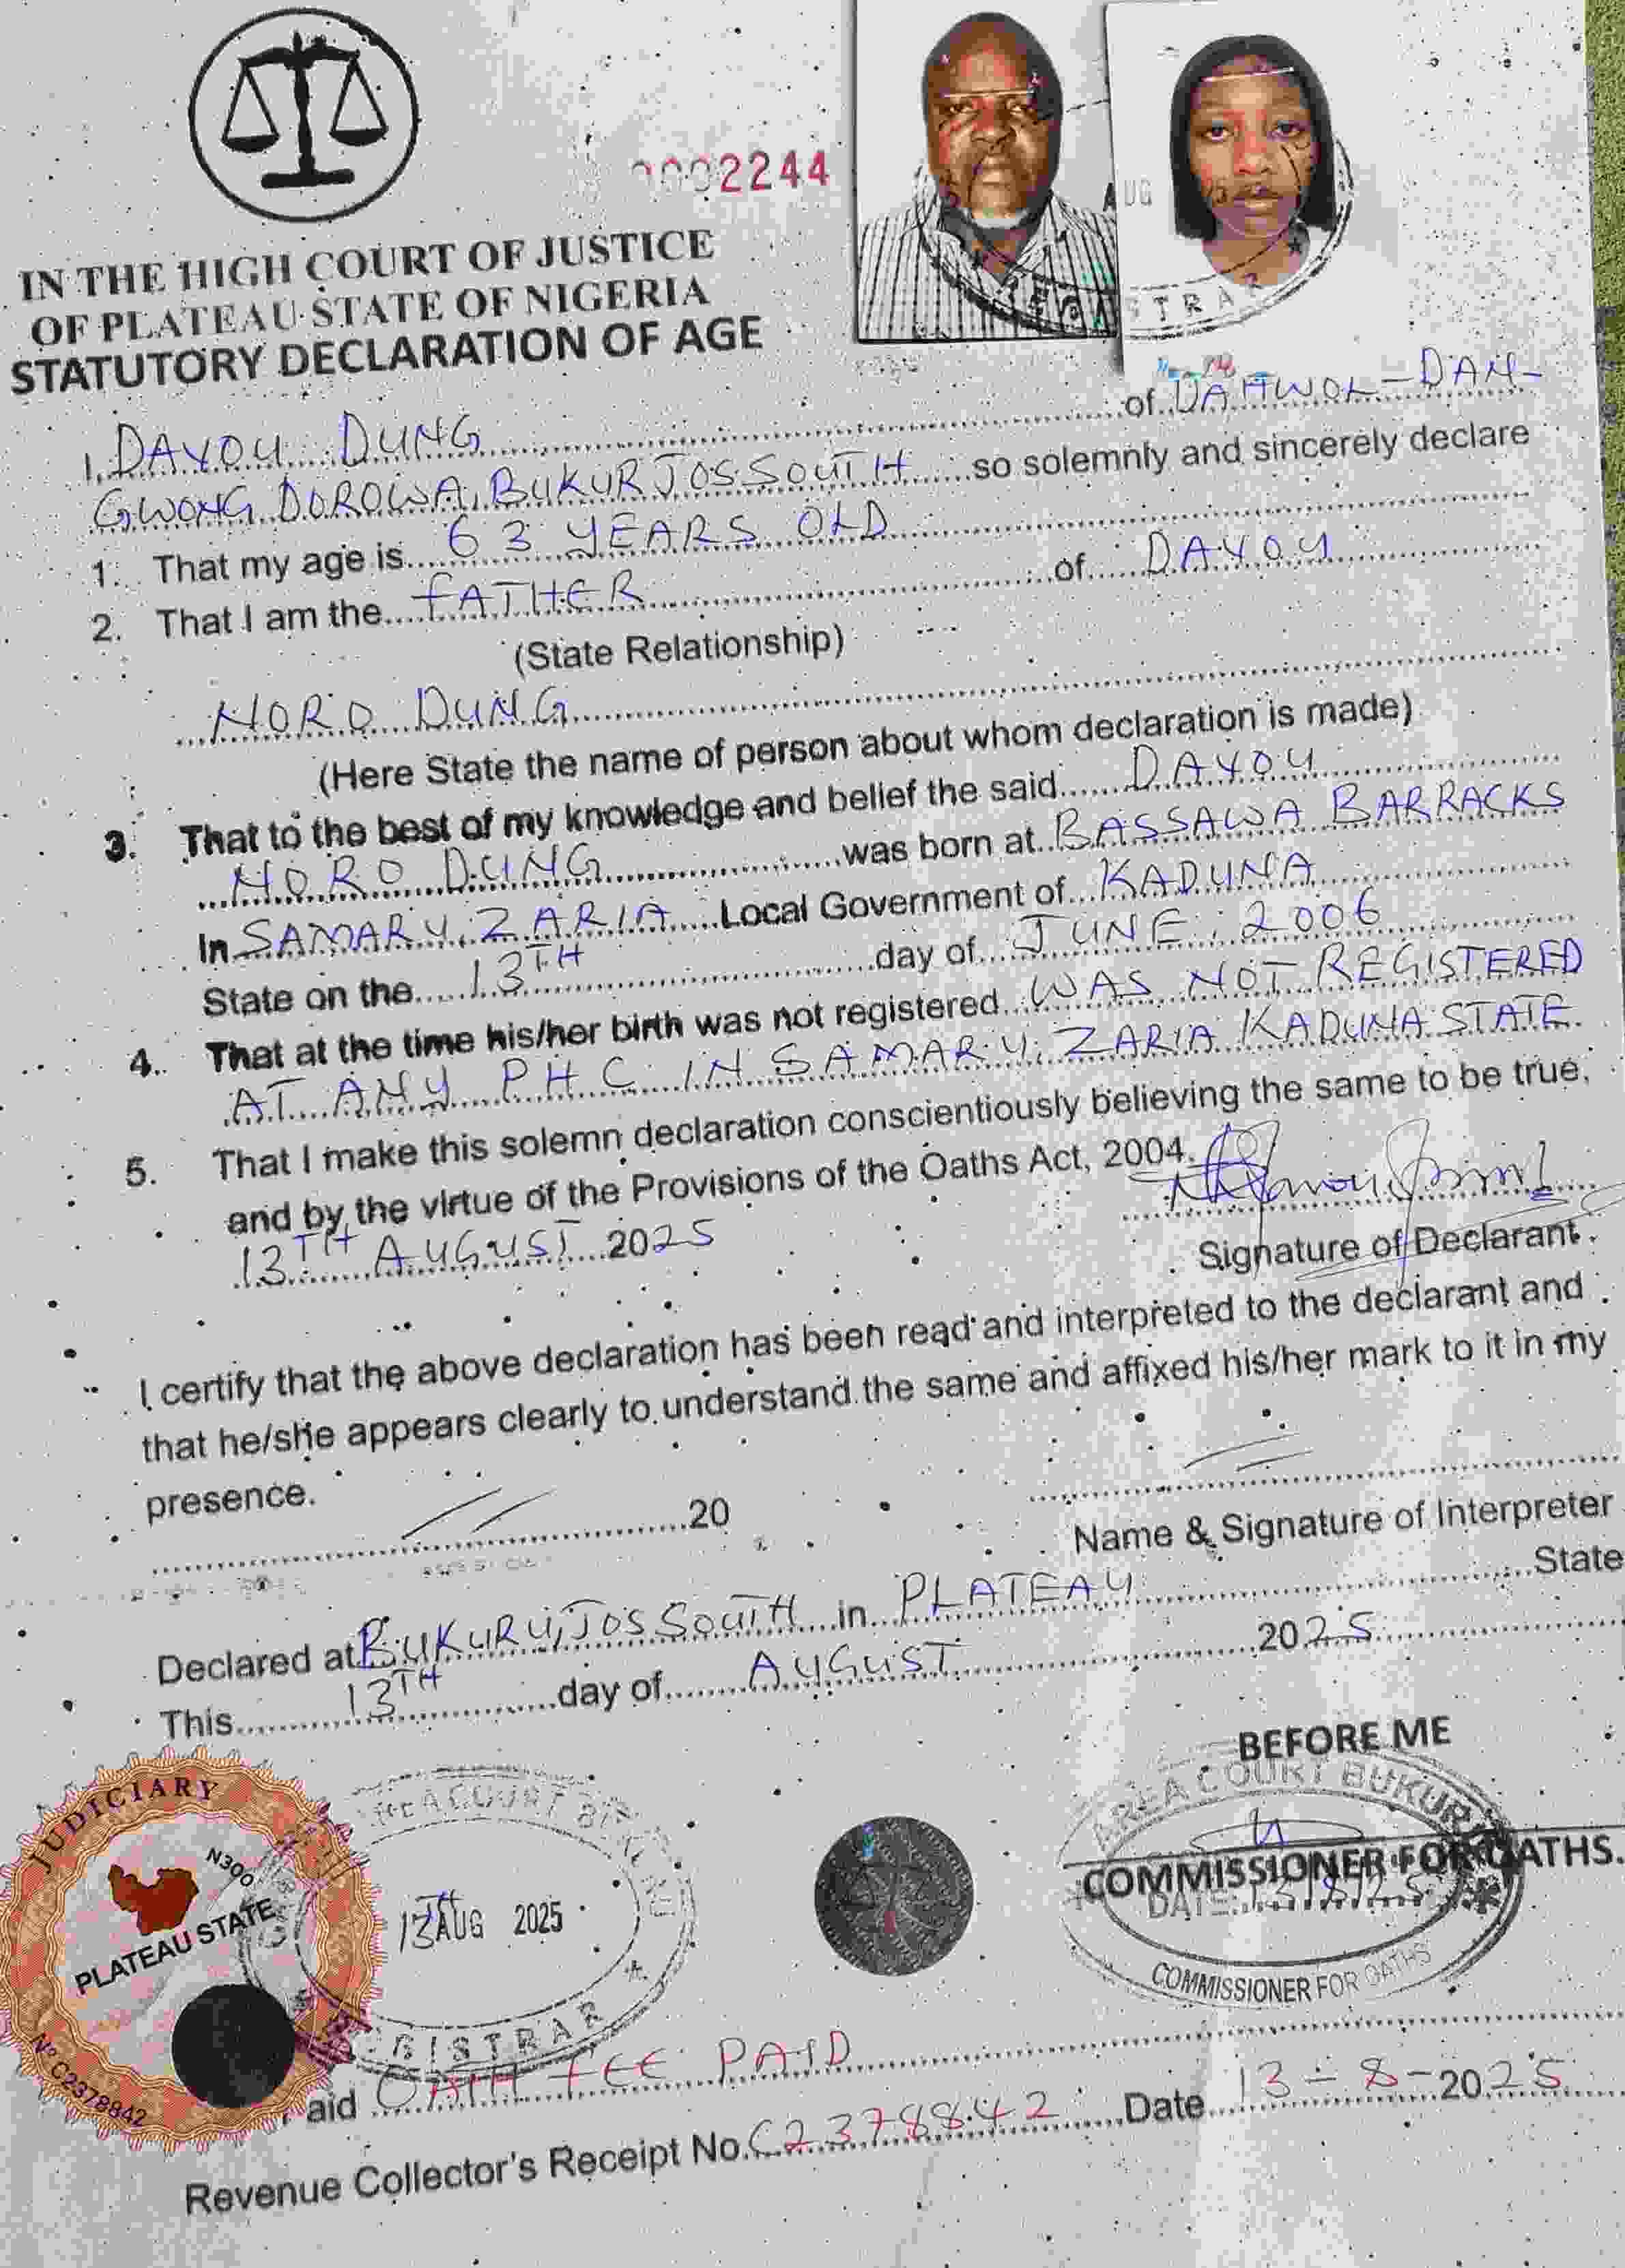 2244
IN THE HIGH COURT OF JUSTICE
OF PLATEAU STATE OF NIGERIA
STATUTORY DECLARATION OF AGE
REGISTRAR
I, DAVOU DUNG of DAHWOL-DAN-
GWONG DOROWA, BUKUR JOS SOUTH so solemnly and sincerely declare
1. That my age is 63 YEARS OLD
2. That I am the FATHER of DAVOU
(State Relationship)
NORO DUNG
(Here State the name of person about whom declaration is made)
3. That to the best of my knowledge and belief the said DAVOU
NORO DUNG was born at BASSAWA BARRACKS
In SAMARU, ZARIA Local Government of KADUNA
State on the 13TH day of JUNE, 2006
4. That at the time his/her birth was not registered WAS NOT REGISTERED
AT ANY PHC IN SAMARU, ZARIA KADUNA STATE
5. That I make this solemn declaration conscientiously believing the same to be true,
and by the virtue of the Provisions of the Oaths Act, 2004.
13TH AUGUST 2025
Signature of Declarant
I certify that the above declaration has been read and interpreted to the declarant and
that he/she appears clearly to understand the same and affixed his/her mark to it in my
presence.
20
Name & Signature of Interpreter
Declared at BUKURU, JOS SOUTH in PLATEAU State
This 13TH day of AUGUST 2025
BEFORE ME
AREA COURT BUKURU
COMMISSIONER FOR OATHS.
DATE: 13/8/25
COMMISSIONER FOR OATHS
JUDICIARY
N300
PLATEAU STATE
Nº C2378842
AREA COURT BUKURU
13TH AUG 2025
REGISTRAR
aid OATH FEE PAID
Revenue Collector's Receipt No. C2378842 Date 13-8-2025